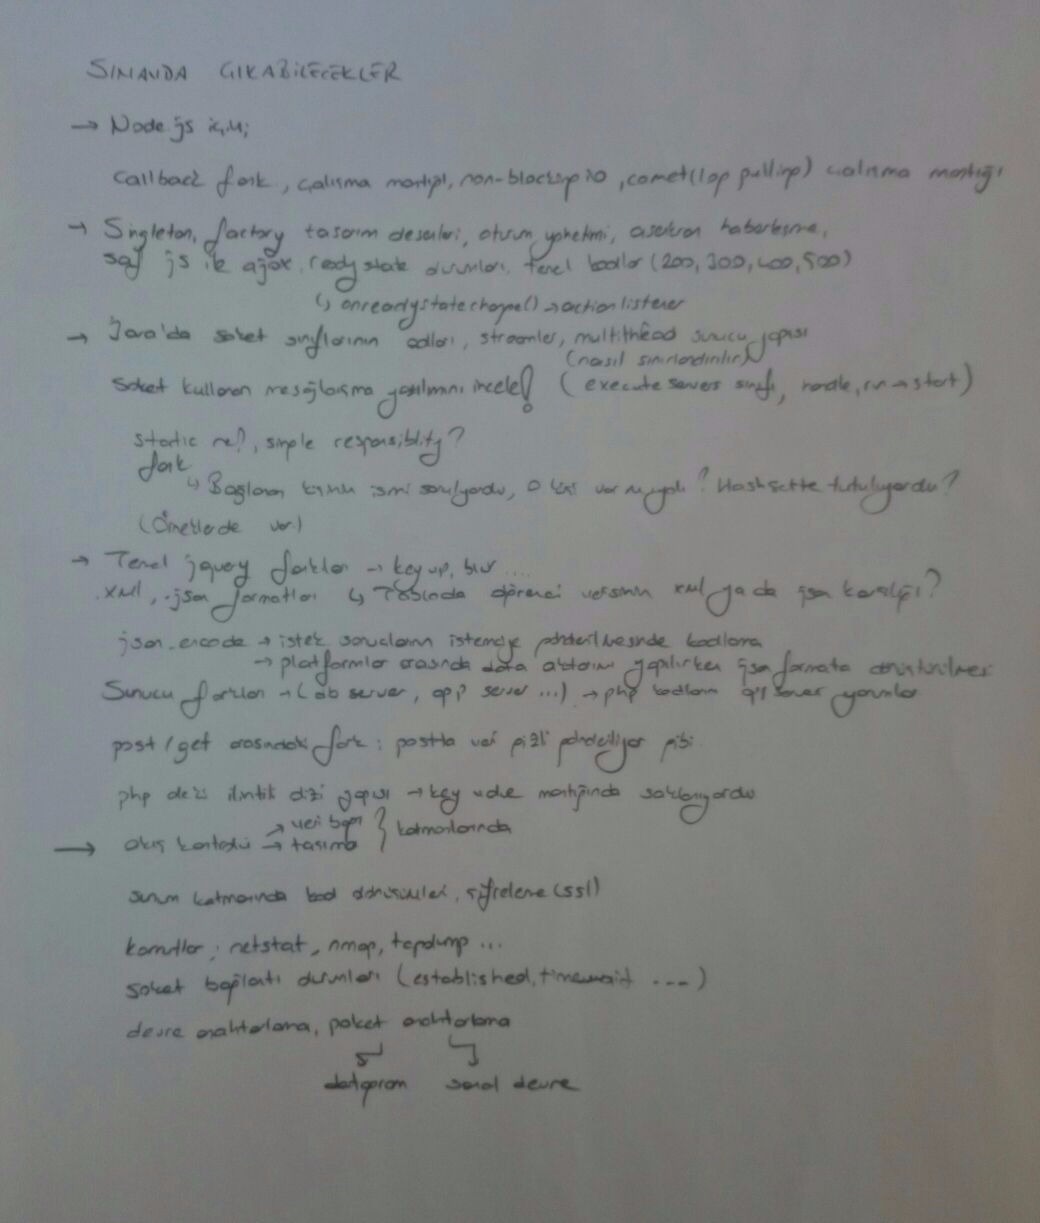 SINAVDA ÇIKABİLECEKLER
→ Node.js için;
callback fark, çalışma mantığı, non-blocking io, comet(lop pulling) çalışma mantığı
→ Singleton, factory tasarım desenleri, oturum yönetimi, asenkron haberleşme,
saf js ile ajax, ready state durumları, temel kodlar (200, 300, 400, 500)
↳ onreadystatechange() → action listener
→ Java'da soket sınıflarının adları, streamler, multithread sunucu yapısı
(nasıl sınırlandırılır)
Soket kullanan mesajlaşma yazılımını incele! (execute servers sınıfı, handle, run → start)
static ne?, simple responsiblity?
fark
↳ Bağlanan kişinin ismi soruluyordu, o kişi var mıydı? Hashsette tutuluyordu?
(Örneklerde var)
→ Temel jquery farkları → key up, blur ....
xml, .json formatları ↳ Tabloda öğrenci verisinin xml ya da json karşılığı?
json-encode → istek sonuçlarının istemciye gönderilmesinde kodlama
→ platformlar arasında data aktarımı yapılırken json formata dönüştürülmesi
Sunucu farkları → (db server, app server ...) → php kodlarını app server yorumlar
post / get arasındaki fark : postta veri gizli gönderiliyor gibi.
php de ilintili dizi yapısı → key value mantığında saklanıyordu
→ akış kontrolü → veri bağı } katmanlarında
→ taşıma
sunum katmanında kod dönüşümleri, şifreleme (ssl)
komutlar ; netstat, nmap, tcpdump ...
soket bağlantı durumları (established, timewait ---)
devre anahtarlama, paket anahtarlama
datagram sanal devre